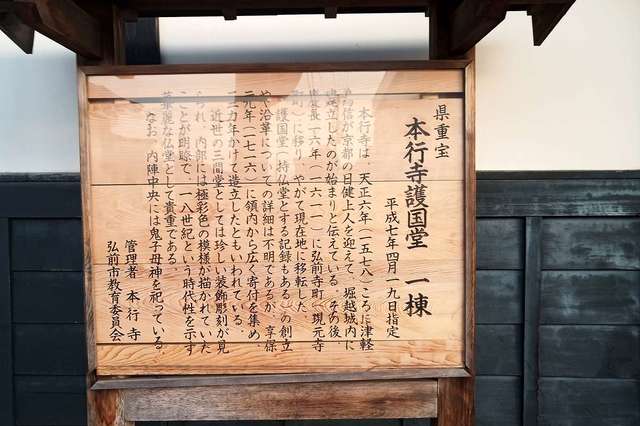 県重宝
本行寺護国堂 一棟
平成七年四月一九日指定
本行寺は、天正六年（一五七八）ごろに津軽
為信が京都の日健上人を迎えて、堀越城内に
建立したのが始まりと伝えている。その後、
慶長一六年（一六一一）に弘前寺町（現元寺
町）に移り、やがて現在地に移転した。
護国堂（持仏堂とする記録もある）の創立
や沿革についての詳細は不明であるが、享保
元年（一七一六）に領内から広く寄付を集め、
三カ年かけて造立したともいわれている。
近世の三間堂としては珍しい装飾彫刻が見
られ、内部には極彩色の模様が描かれていた
ことが明瞭で、一八世紀という時代性を示す
華麗な仏堂として貴重である。
なお、内陣中央には鬼子母神を祀っている。
管理者 本行寺
弘前市教育委員会